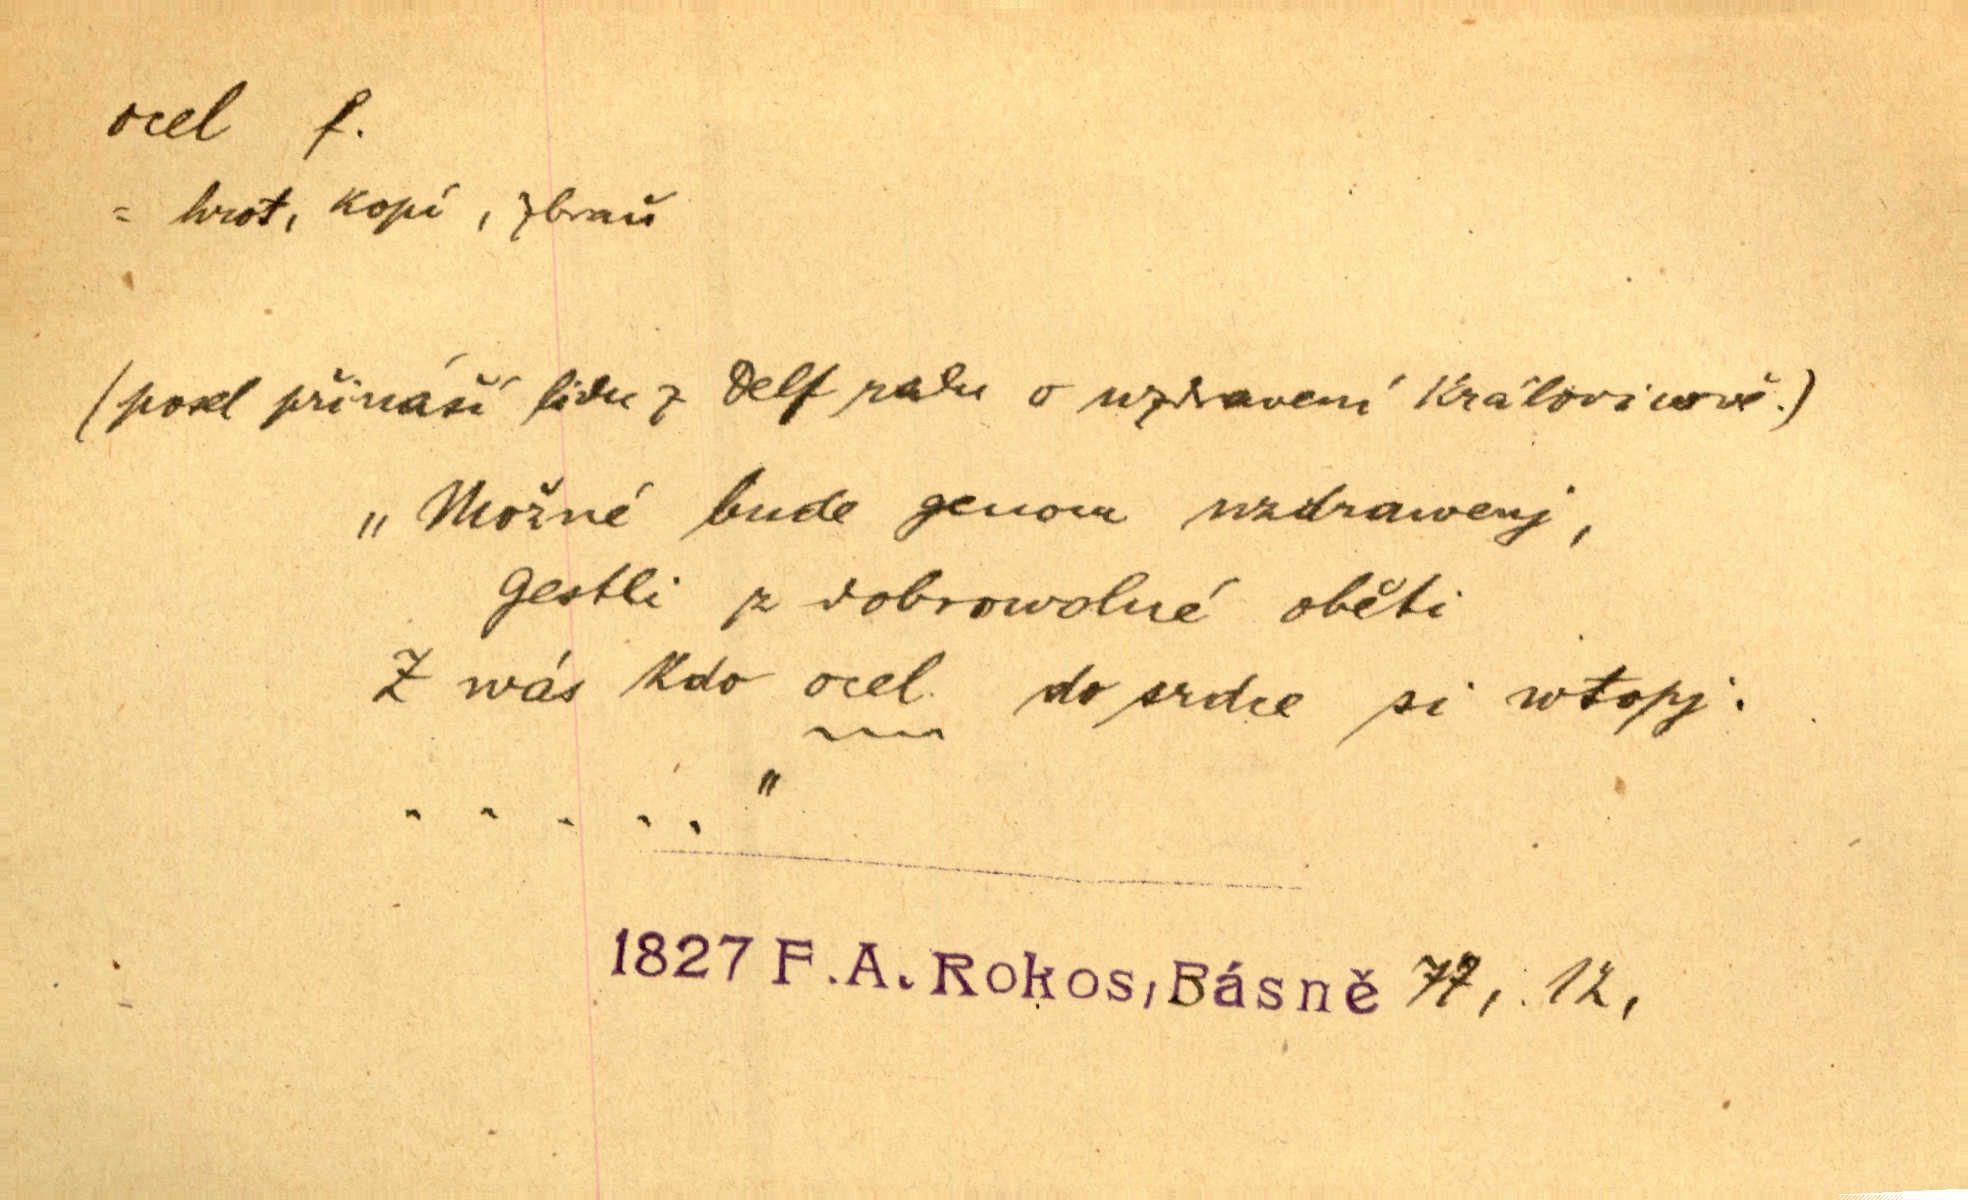 ocel f.
= hrot, kopí, zbraň
(posel přináší lidu z Delf radu o uzdravení královicově.)
„Možné bude genom uzdrawenj,
Gestli z dobrowolné oběti
Z wás kdo ocel do srdce si wtopj:
. . . . ."
1827 F.A. Rokos, Básně 77, 12,